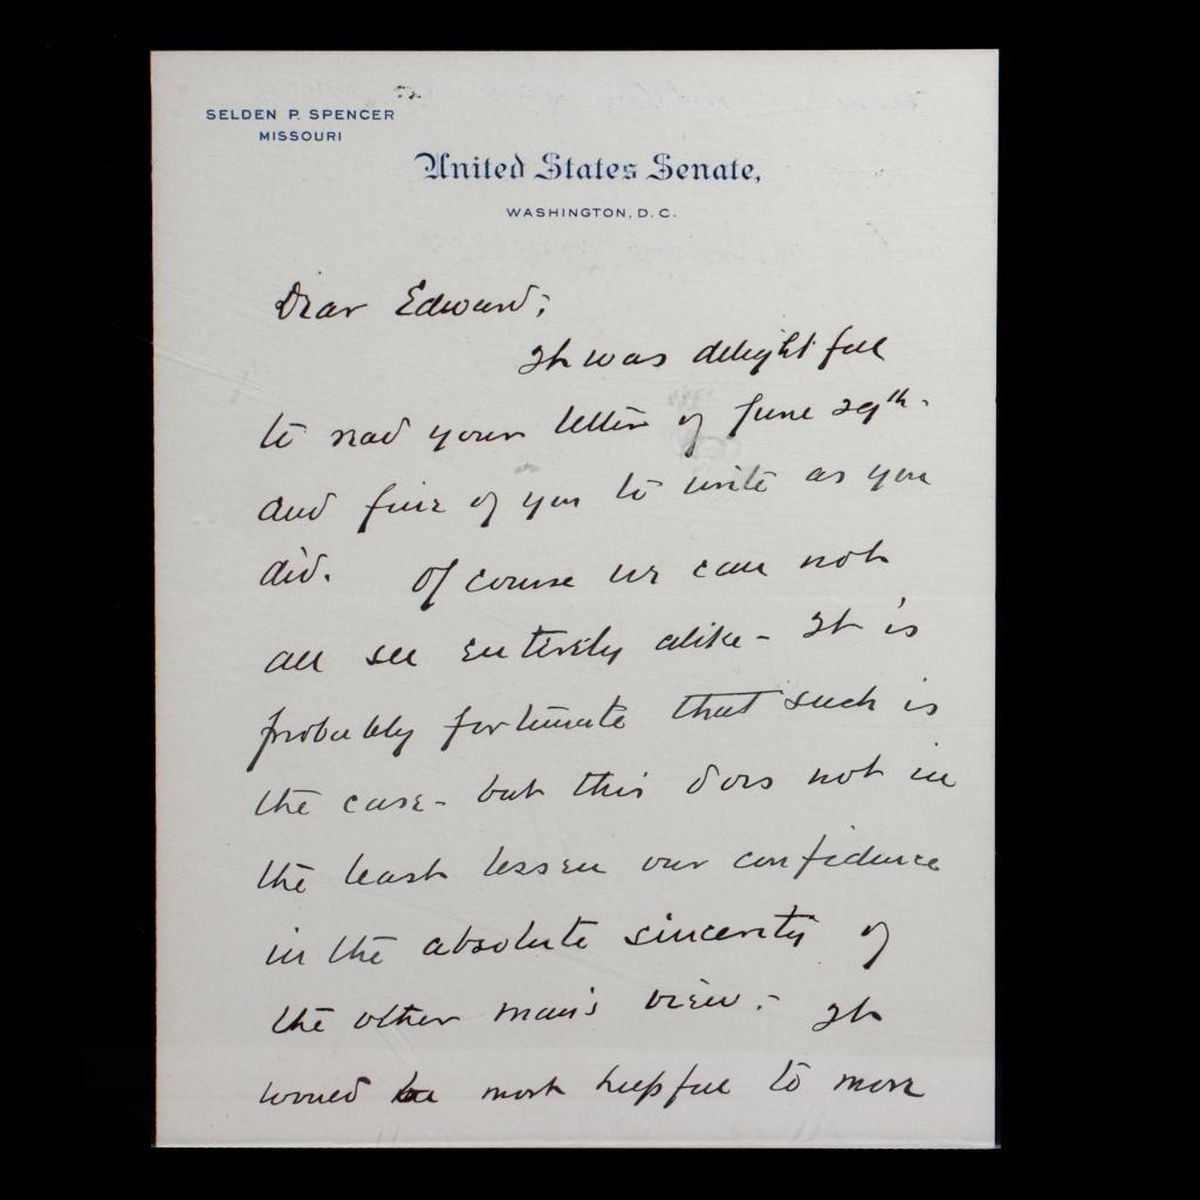 SELDEN P. SPENCER
MISSOURI
United States Senate,
WASHINGTON, D. C.
Dear Edward;
It was delightful
to read your letter of June 29th.
and fine of you to write as you
did. Of course we can not
all see entirely alike - It is
probably fortunate that such is
the case - but this does not in
the least lessen our confidence
in the absolute sincerity of
the other man's view. - It
would be most helpful to more